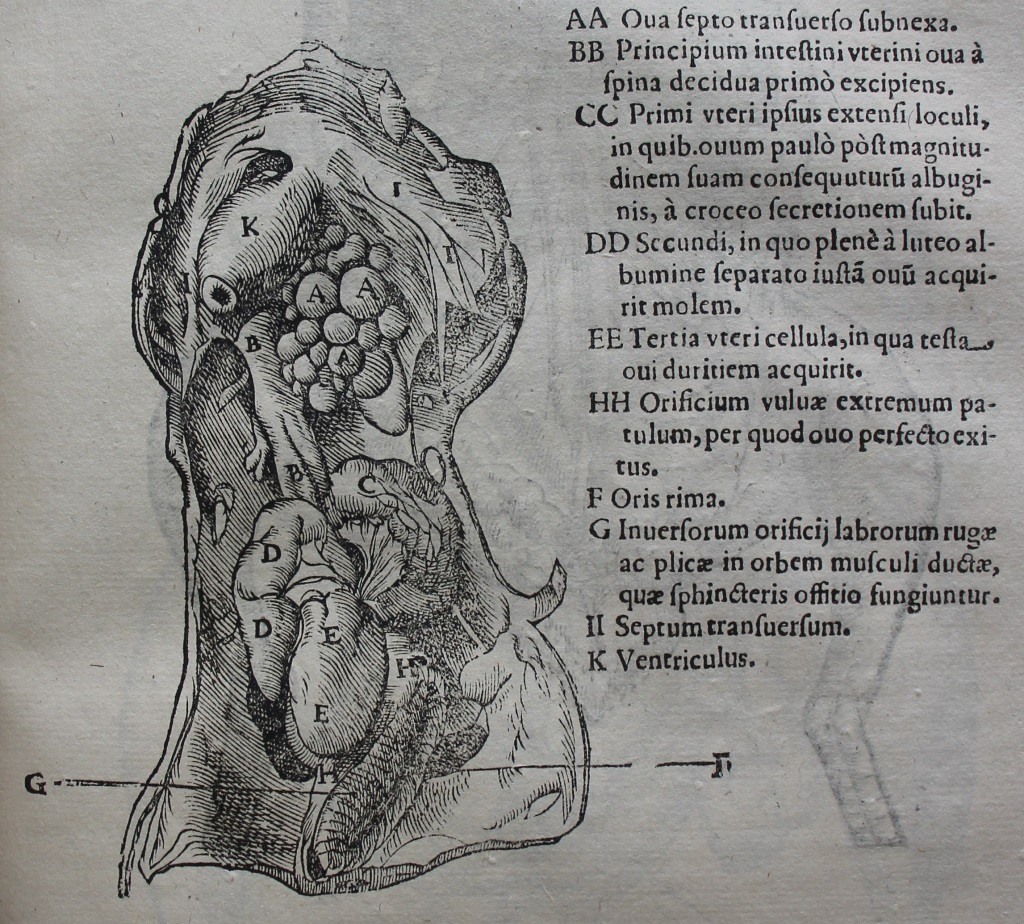 AA Oua ſepto tranſuerſo ſubnexa.
BB Principium inteſtini vterini oua à
ſpina decidua primò excipiens.
CC Primi vteri ipſius extenſi loculi,
in quib.ouum paulò pòſt magnitu-
dinem ſuam conſequuturũ albugi-
nis, à croceo ſecretionem ſubit.
DD Secundi, in quo plenè à luteo al-
bumine ſeparato iuſtã ouũ acqui-
rit molem.
EE Tertia vteri cellula, in qua teſta
oui duritiem acquirit.
HH Orificium vuluæ extremum pa-
tulum, per quod ouo perfecto exi-
tus.
F Oris rima.
G Inuerſorum orificij labrorum rugæ
ac plicæ in orbem muſculi ductæ,
quæ ſphincteris offitio fungiuntur.
II Septum tranſuerſum.
K Ventriculus.
I
K
I
I
A
A
B
A
B
C
D
D
E
H
E
H
G
F